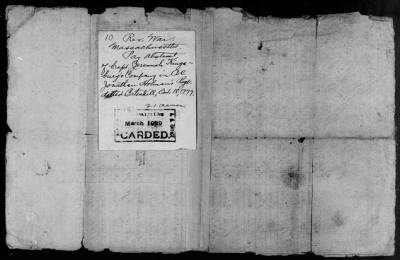 10 Rev. War.
Massachusetts.
Pay Abstract
of Capt. Jeremiah Kings-
bury's Company in Col.
Jonathan Holman's Regt.
dated Oct. 18, 1777.
21 names
March 1909
CARDED